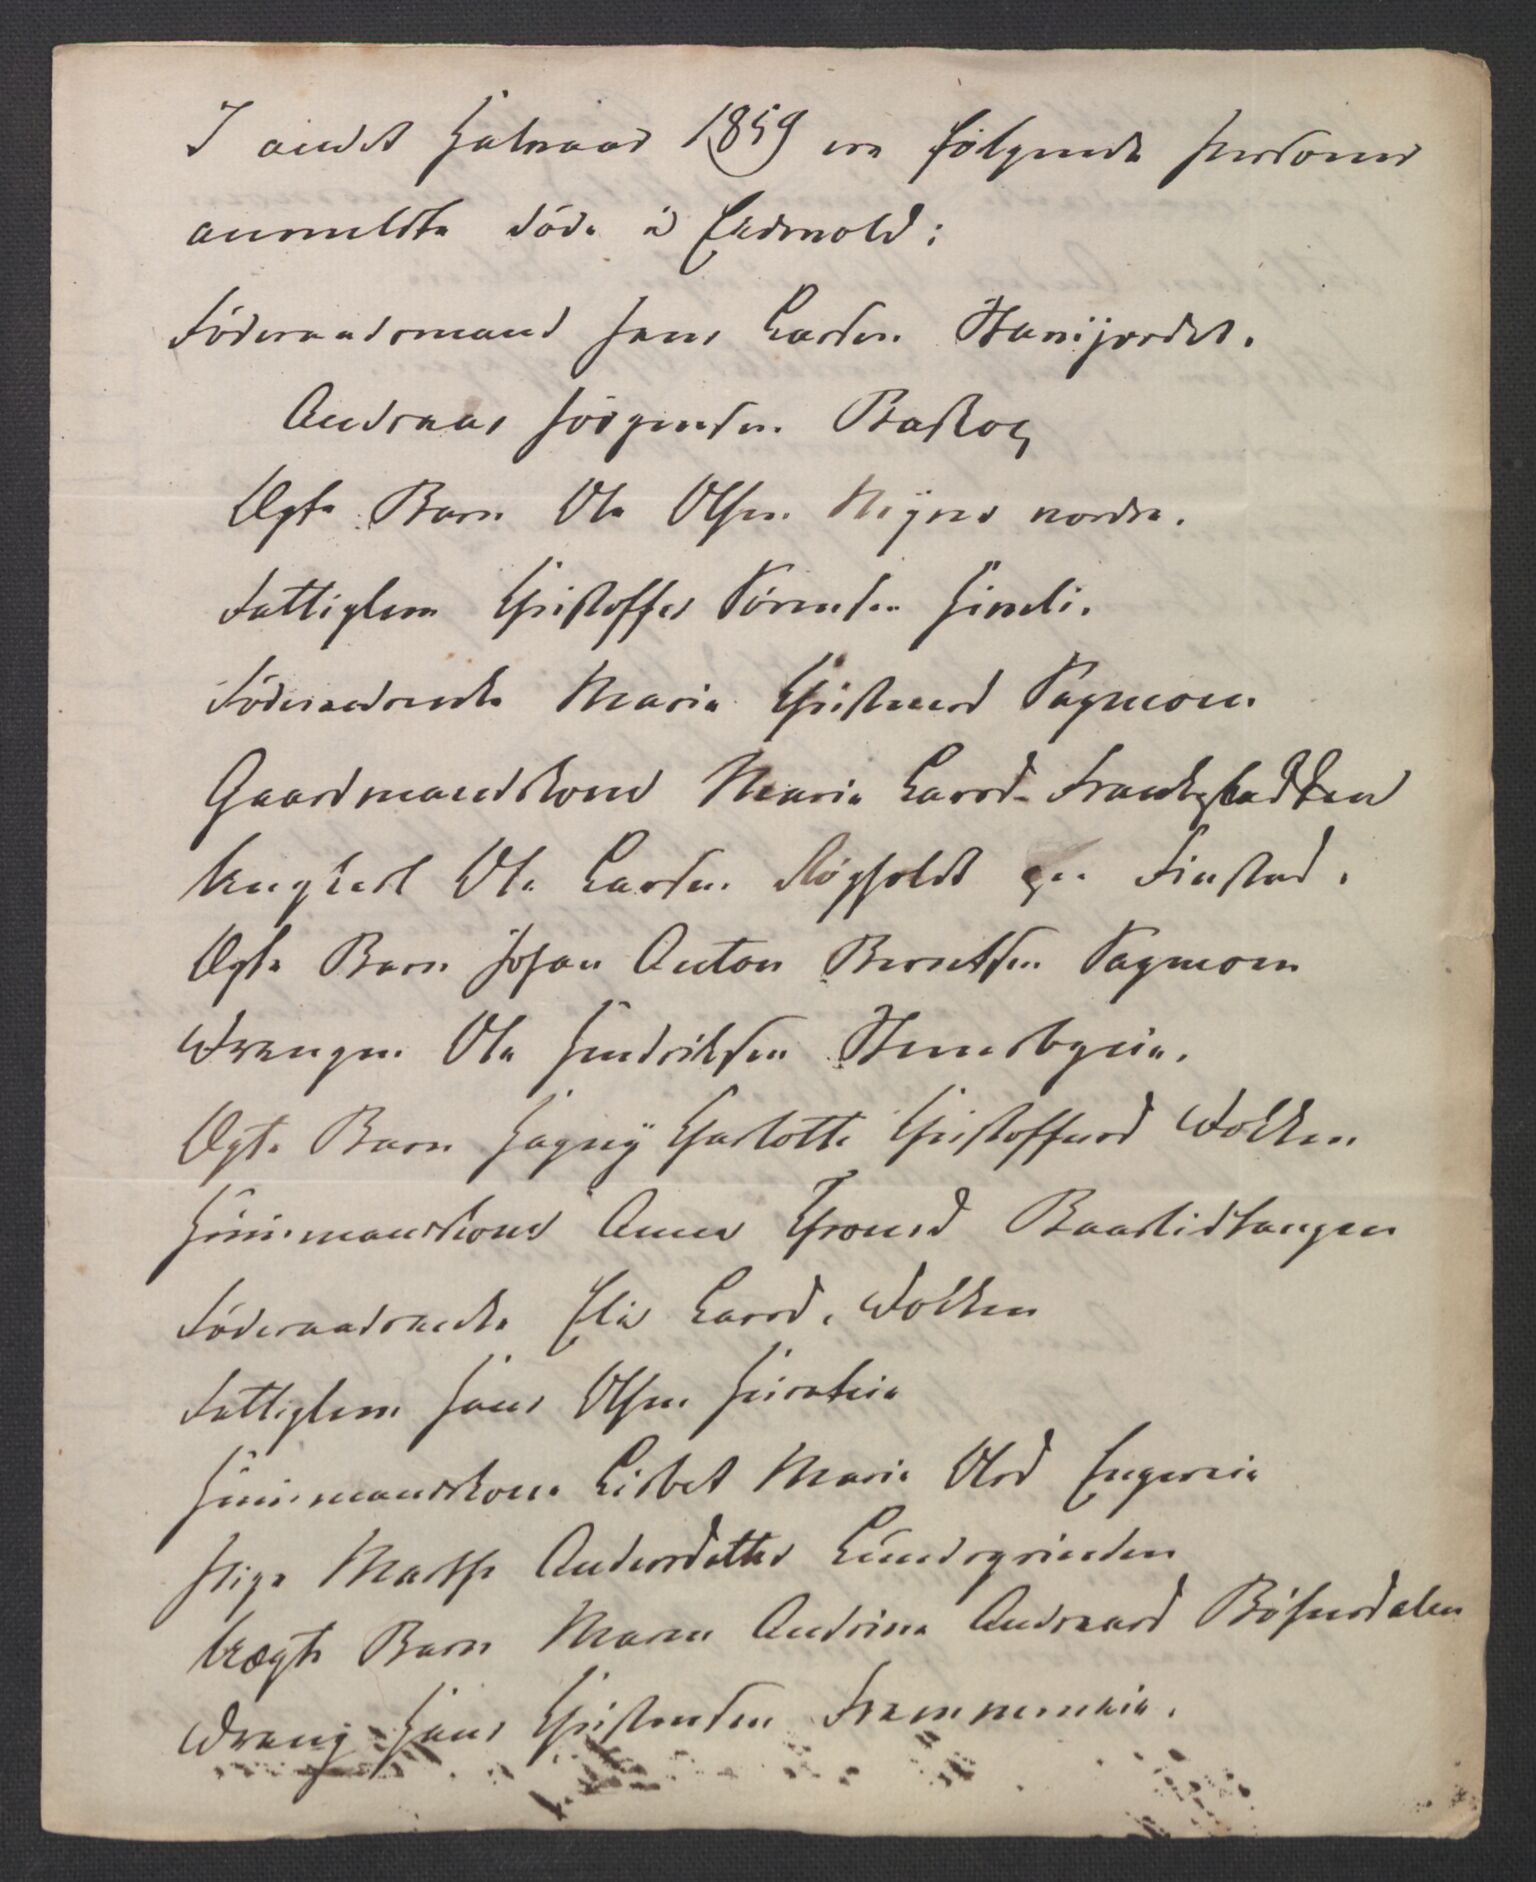 I andet Halvaar 1859 ere følgende Personer
anmeldte døde i Eidsvold:
Føderaadsmand Jens Larsen Hamijordet.
Andreas Jørgensen Baskog
Ægte Barn Ole Olsen Nÿgrd nordre.
Fattiglem Christoffer Sørensen Himli.
Føderaadsenke Marie Christensd Sagmoen
Gaardmandskone Marie Larsd. Frankstadteen
Ungkarl Ole Larsen Røgholdt Finstad.
Ægte Barn Johan Anton Berntsen Sagmoen
Drengen Ole Hendriksen Hemsbyeie.
Ægte Barn Hagnÿ Charlotte Christoffersd Dokken
Huusmandskone Anne Thronsd Baarlidtangen
Føderaadsenke Elie Larsd. Dokken
Fattiglem Hans Olsen
Huusmandskone Lisbet Marie Olsd Engereie
Pige Marthe Andersdatter Lundsgrinden
Uægte Barn Maren Andrine Andreasd Bøhnsdalen
Dreng Hans Christensen